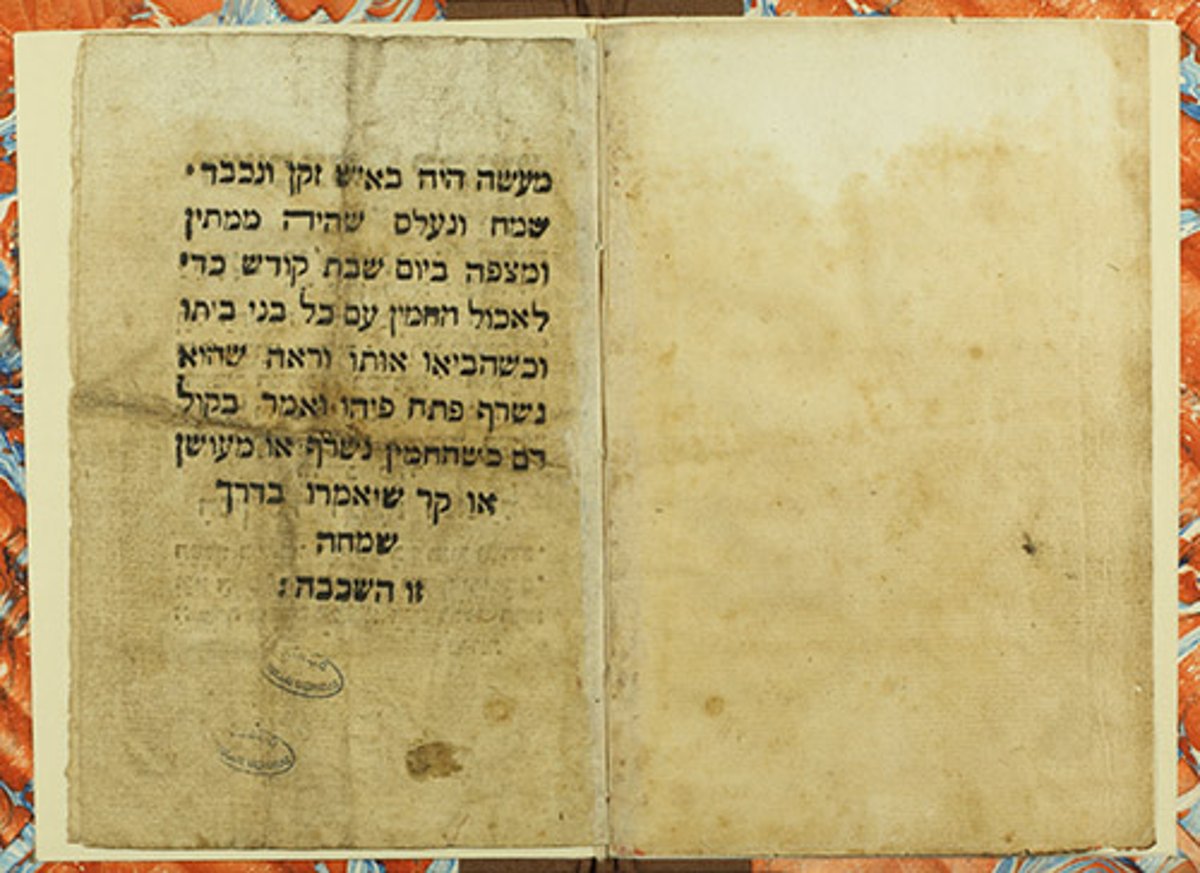 מעשה היה באיש זקן ונכבד׳
שמח ונעלס שהיה ממתין
ומצפה ביום שבת קודש כדי
לאכול החמין עם כל בני ביתו
וכשהביאו אותו וראה שהוא
נשרף פתח פיהו ואמר בקול
רם כשהחמין נשרף או מעושן
או קר שיאמרו בדרך
שמחה
זו השכבה: